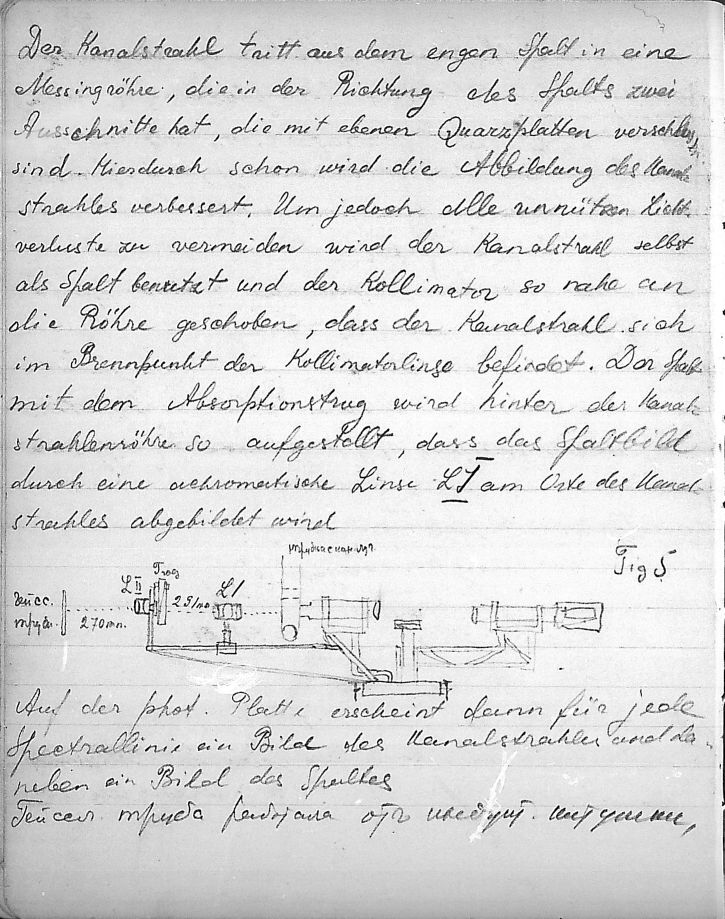 Der Kanalstrahl tritt aus dem engen Spalt in eine
Messingröhre, die in der Richtung des Spalts zwei
Ausschnitte hat, die mit ebenen Quarzplatten verschlossen
sind. Hierdurch schon wird die Abbildung des Kanal-
strahles verbessert. Um jedoch alle unnützen Licht-
verluste zu vermeiden wird der Kanalstrahl selbst
als Spalt benutzt und der Kollimator so nahe an
die Röhre geschoben, dass der Kanalstrahl sich
im Brennpunkt der Kollimatorlinse befindet. Der Spalt
mit dem Absorptionstrog wird hinter der Kanal-
strahlenröhre so aufgestellt, dass das Spaltbild
durch eine achromatische Linse L I am Orte des Kanal-
strahles abgebildet wird
Fig 5
L II
Trog
L I
270 mm.
Auf der phot. Platte erscheint dann für jede
Spectrallinie ein Bild des Kanalstrahles und da-
neben ein Bild des Spaltes
трубка отъ